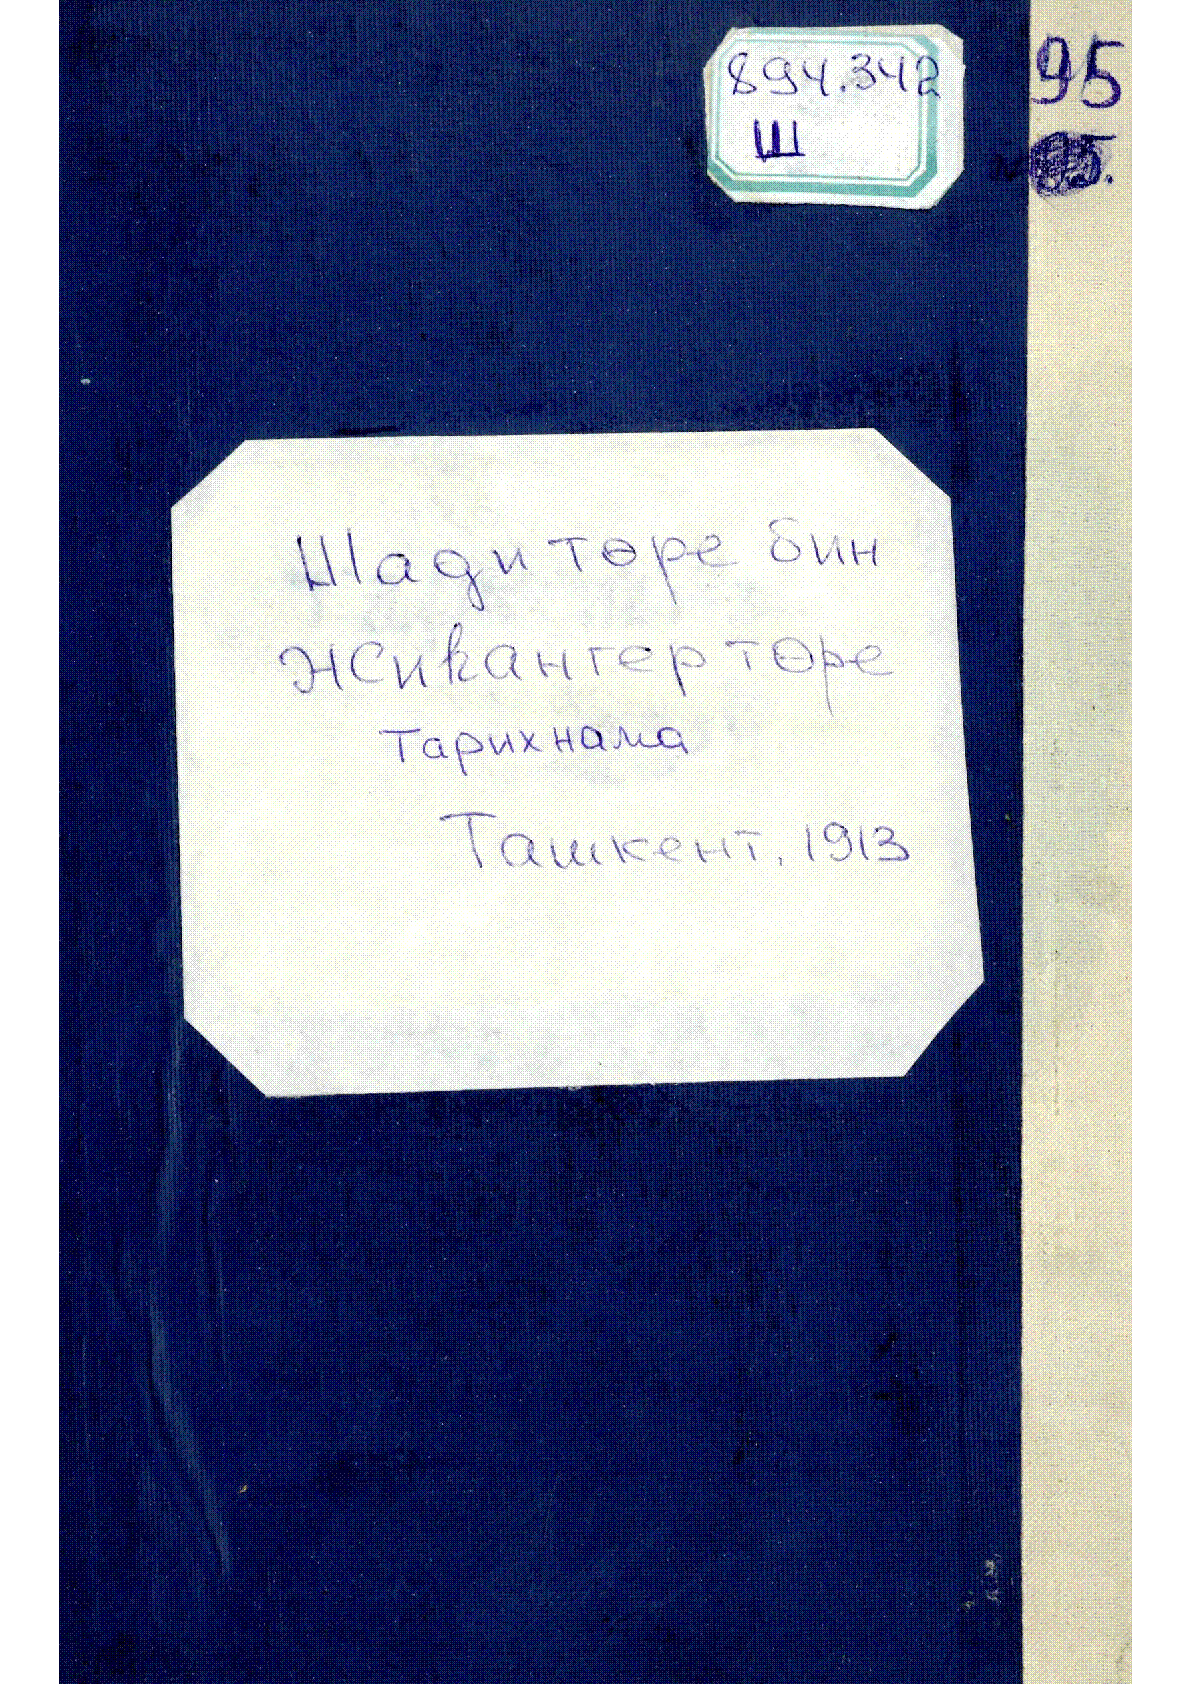 894.342
Ш
95
Шади төре бин
Жиһангер төре
тарихнама
Ташкент. 1913